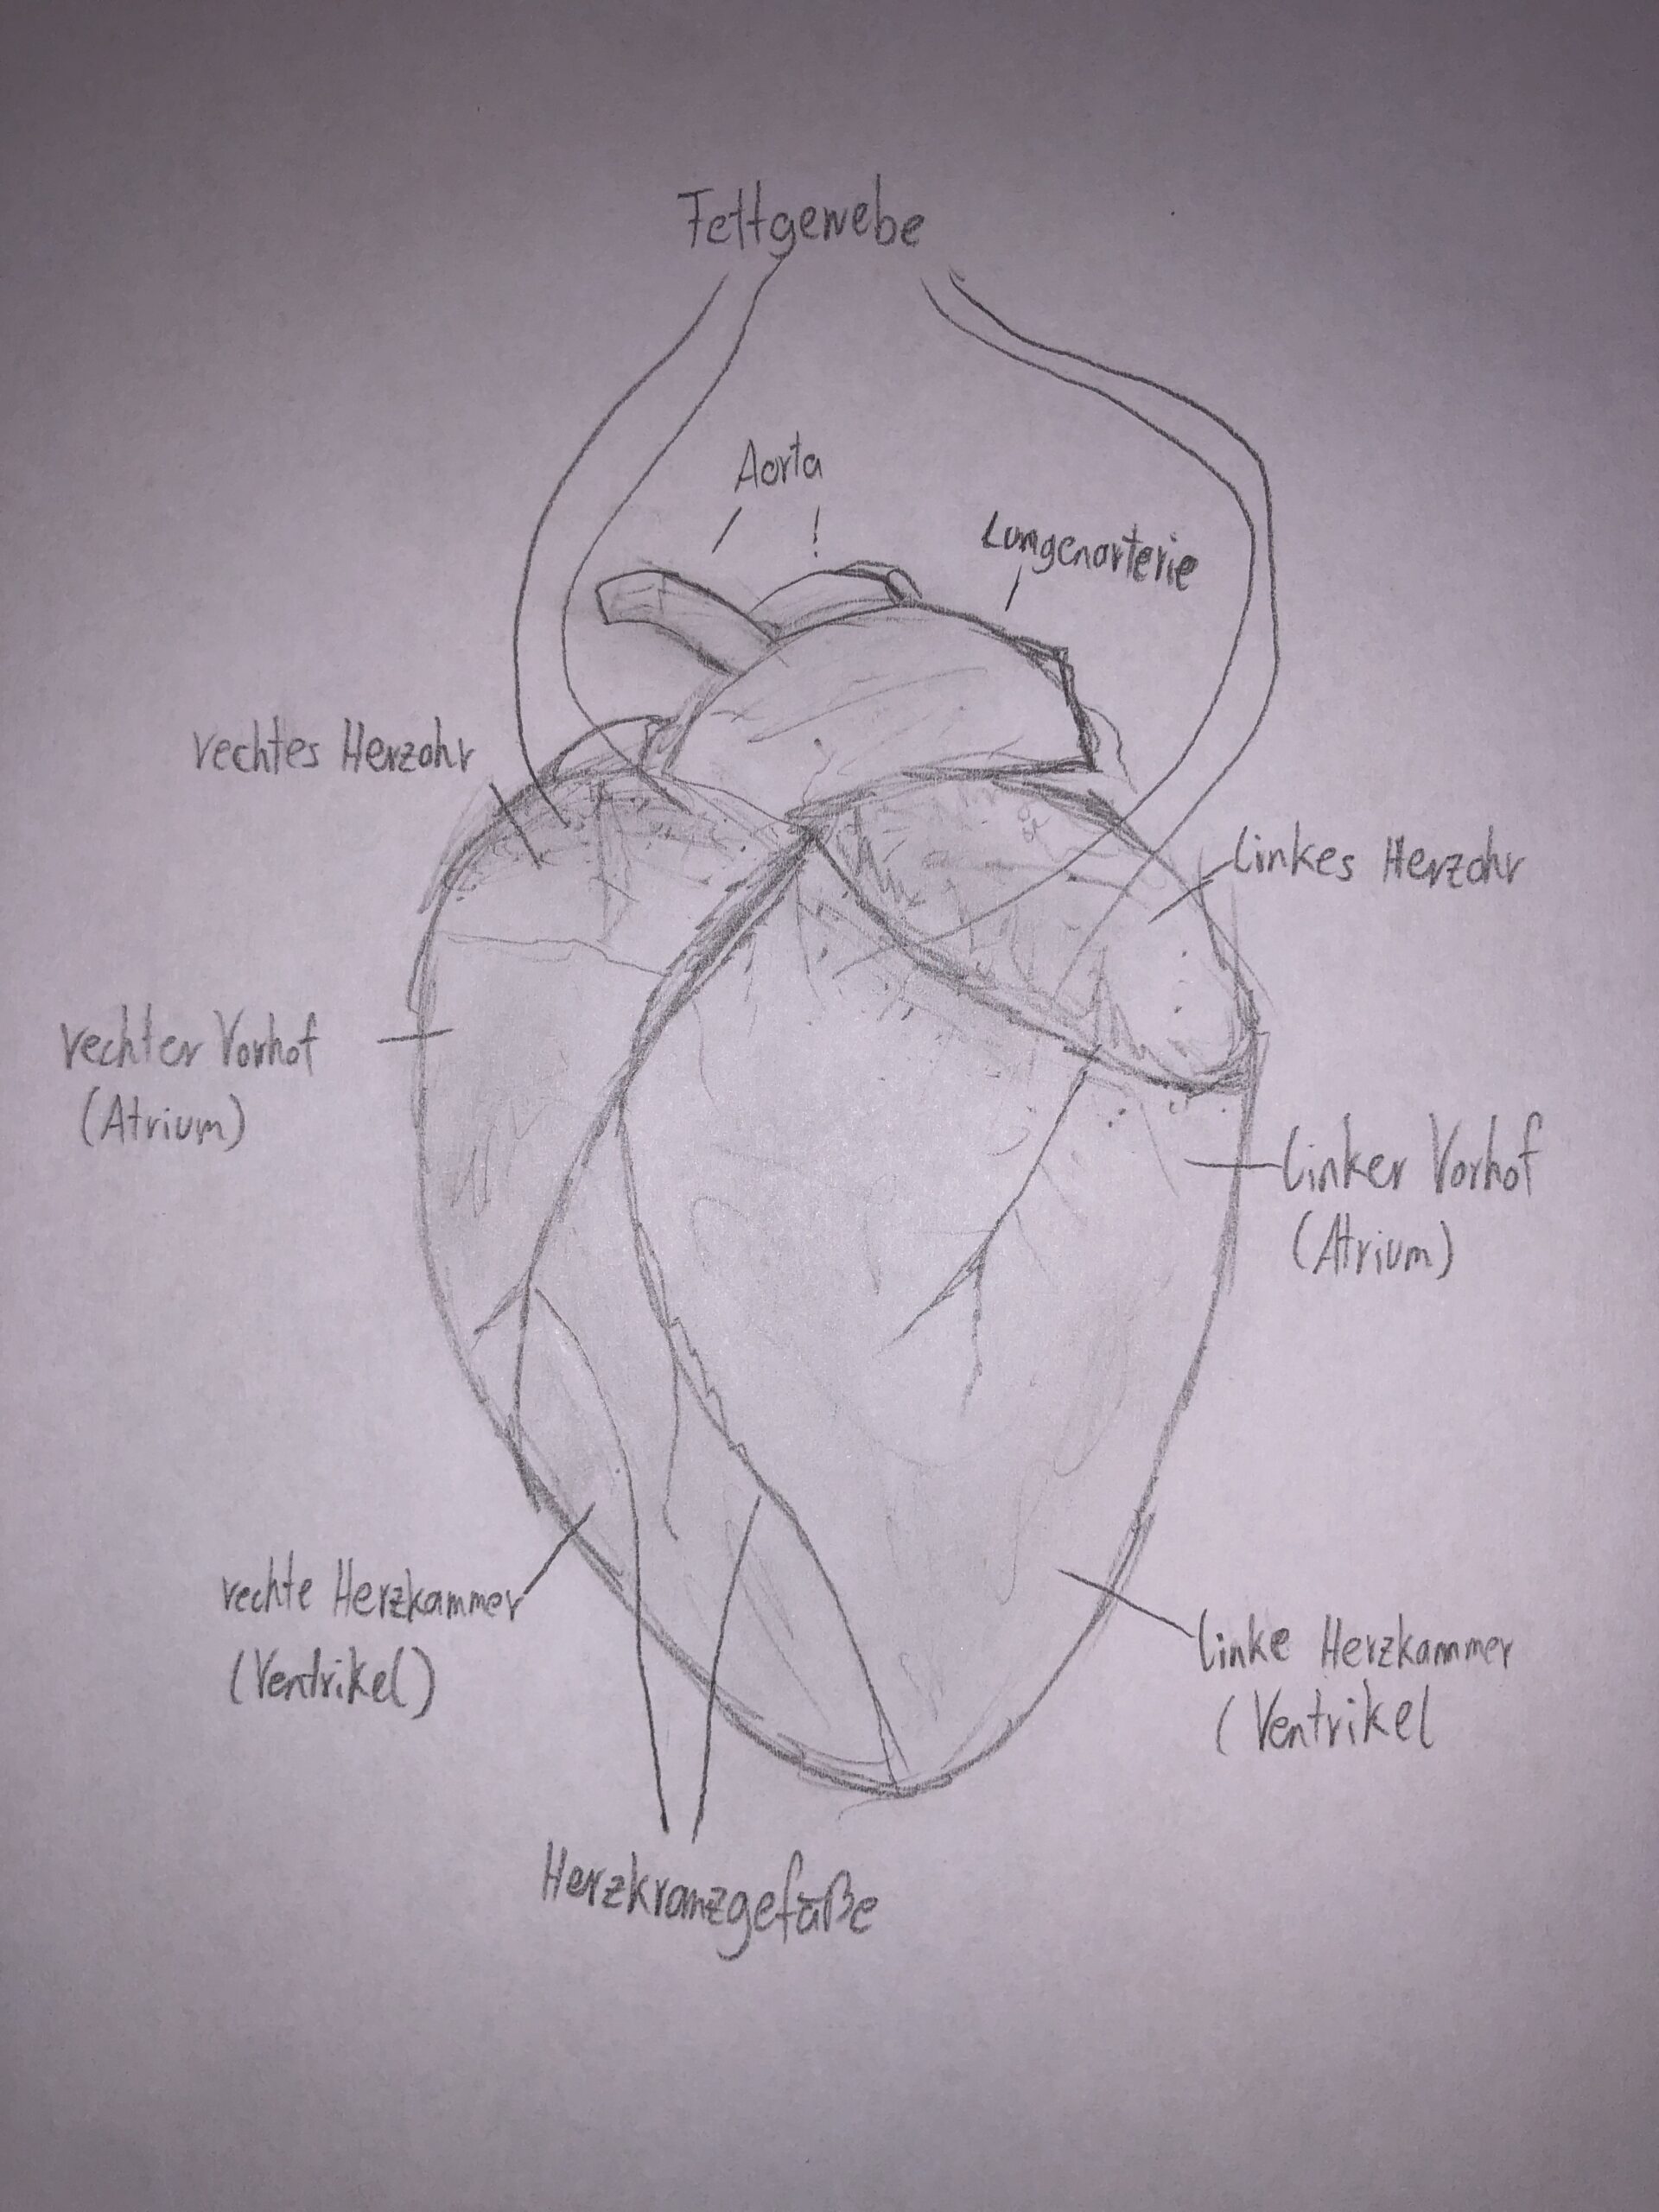 Fettgewebe
Aorta
Lungenarterie
rechtes Herzohr
linkes Herzohr
rechter Vorhof
(Atrium)
linker Vorhof
(Atrium)
rechte Herzkammer
(Ventrikel)
linke Herzkammer
(Ventrikel
Herzkranzgefäße